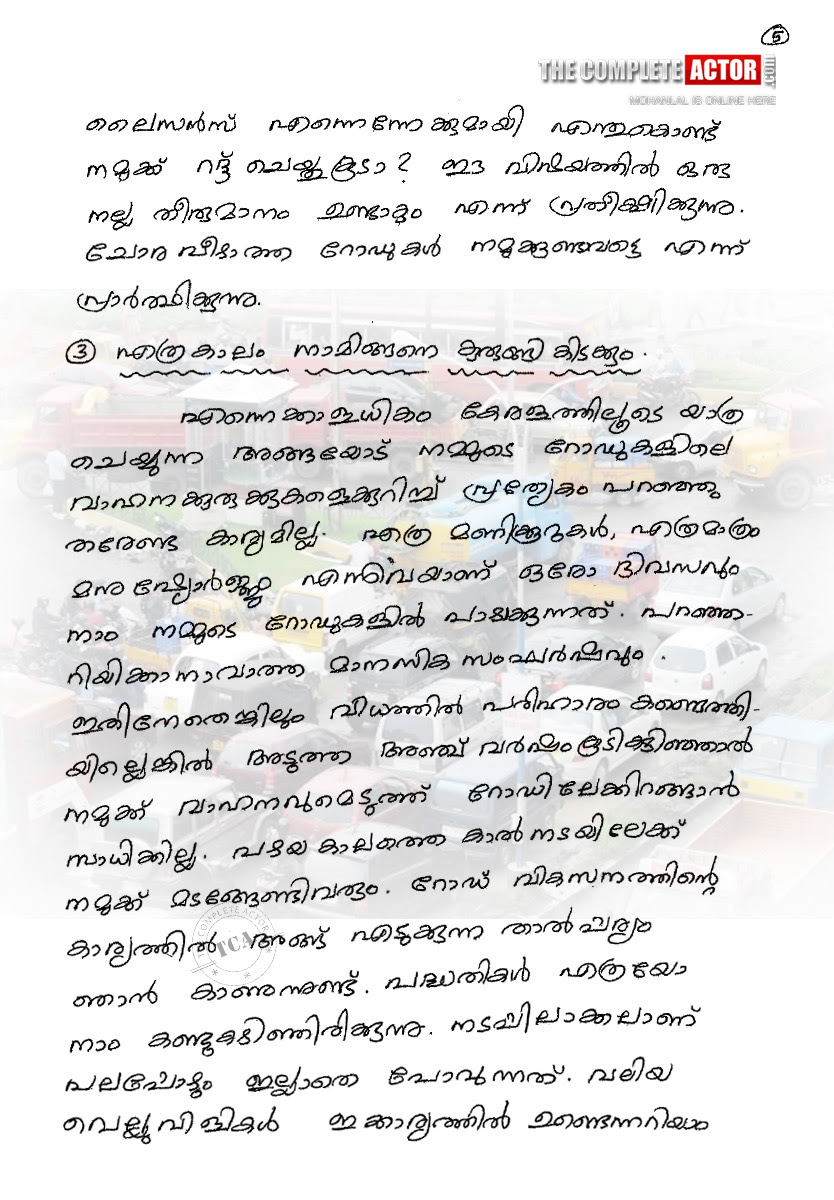 5
THE COMPLETE ACTOR .com
MOHANLAL IS ONLINE HERE
ലൈസൻസ് എന്നെന്നേക്കുമായി എന്തുകൊണ്ട്
നമുക്ക് റദ്ദ് ചെയ്തുകൂടാ? ഈ വിഷയത്തിൽ ഒരു
നല്ല തീരുമാനം ഉണ്ടാകും എന്ന് പ്രതീക്ഷിക്കുന്നു.
ചോര വീഴാത്ത റോഡുകൾ നമുക്കുണ്ടാവട്ടെ എന്ന്
പ്രാർത്ഥിക്കുന്നു.
③ എത്രകാലം നാമിങ്ങനെ കുരുങ്ങി കിടക്കും.
എന്നെക്കാളധികം കേരളത്തിലൂടെ യാത്ര
ചെയ്യുന്ന അങ്ങയോട് നമ്മുടെ റോഡുകളിലെ
വാഹനക്കുരുക്കുകളെക്കുറിച്ച് പ്രത്യേകം പറഞ്ഞു
തരേണ്ട കാര്യമില്ല. എത്ര മണിക്കൂറുകൾ, എത്രമാത്രം
മനുഷ്യോർജ്ജം എന്നിവയാണ് ഒരോ ദിവസവും
നാം നമ്മുടെ റോഡുകളിൽ പാഴാക്കുന്നത്. പറഞ്ഞ-
റിയിക്കാനാവാത്ത മാനസിക സംഘർഷവും.
ഇതിനേതെങ്കിലും വിധത്തിൽ പരിഹാരം കണ്ടെത്തി-
യില്ലെങ്കിൽ അടുത്ത അഞ്ച് വർഷംകൂടികഴിഞ്ഞാൽ
നമുക്ക് വാഹനവുമെടുത്ത് റോഡിലേക്കിറങ്ങാൻ
സാധിക്കില്ല. പഴയകാലത്തെ കാൽനടയിലേക്ക്
നമുക്ക് മടങ്ങേണ്ടിവരും. റോഡ് വികസനത്തിന്റെ
കാര്യത്തിൽ അങ്ങ് എടുക്കുന്ന താൽപ്പര്യം
ഞാൻ കാണുന്നുണ്ട്. പദ്ധതികൾ എത്രയോ
നാം കണ്ടുകഴിഞ്ഞിരിക്കുന്നു. നടപ്പിലാക്കലാണ്
പലപ്പോഴും ഇല്ലാതെ പോവുന്നത്. വലിയ
വെല്ലുവിളികൾ ഇക്കാര്യത്തിൽ ഉണ്ടെന്നറിയാം
THE COMPLETE ACTOR
TCA